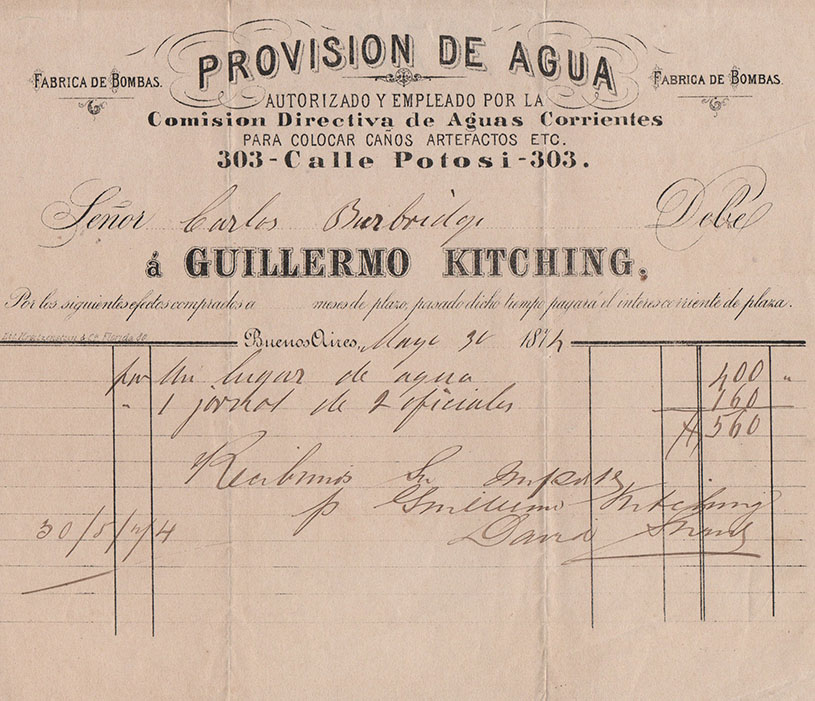 PROVISION DE AGUA
FABRICA DE BOMBAS. FABRICA DE BOMBAS.
AUTORIZADO Y EMPLEADO POR LA
Comision Directiva de Aguas Corrientes
PARA COLOCAR CAÑOS ARTEFACTOS ETC.
303-Calle Potosi-303.
Señor Carlos Burbridge Debe
á GUILLERMO KITCHING.
Por los siguientes efectos comprados a meses de plazo, pasado dicho tiempo pagará el interes corriente de plaza.
Buenos Aires, Mayo 30 1874
por un lugar de agua 400 "
" 1 jornal de 2 oficiales 160
560
Recibimos su importe
p Guillermo Kitching
30/5/74 David